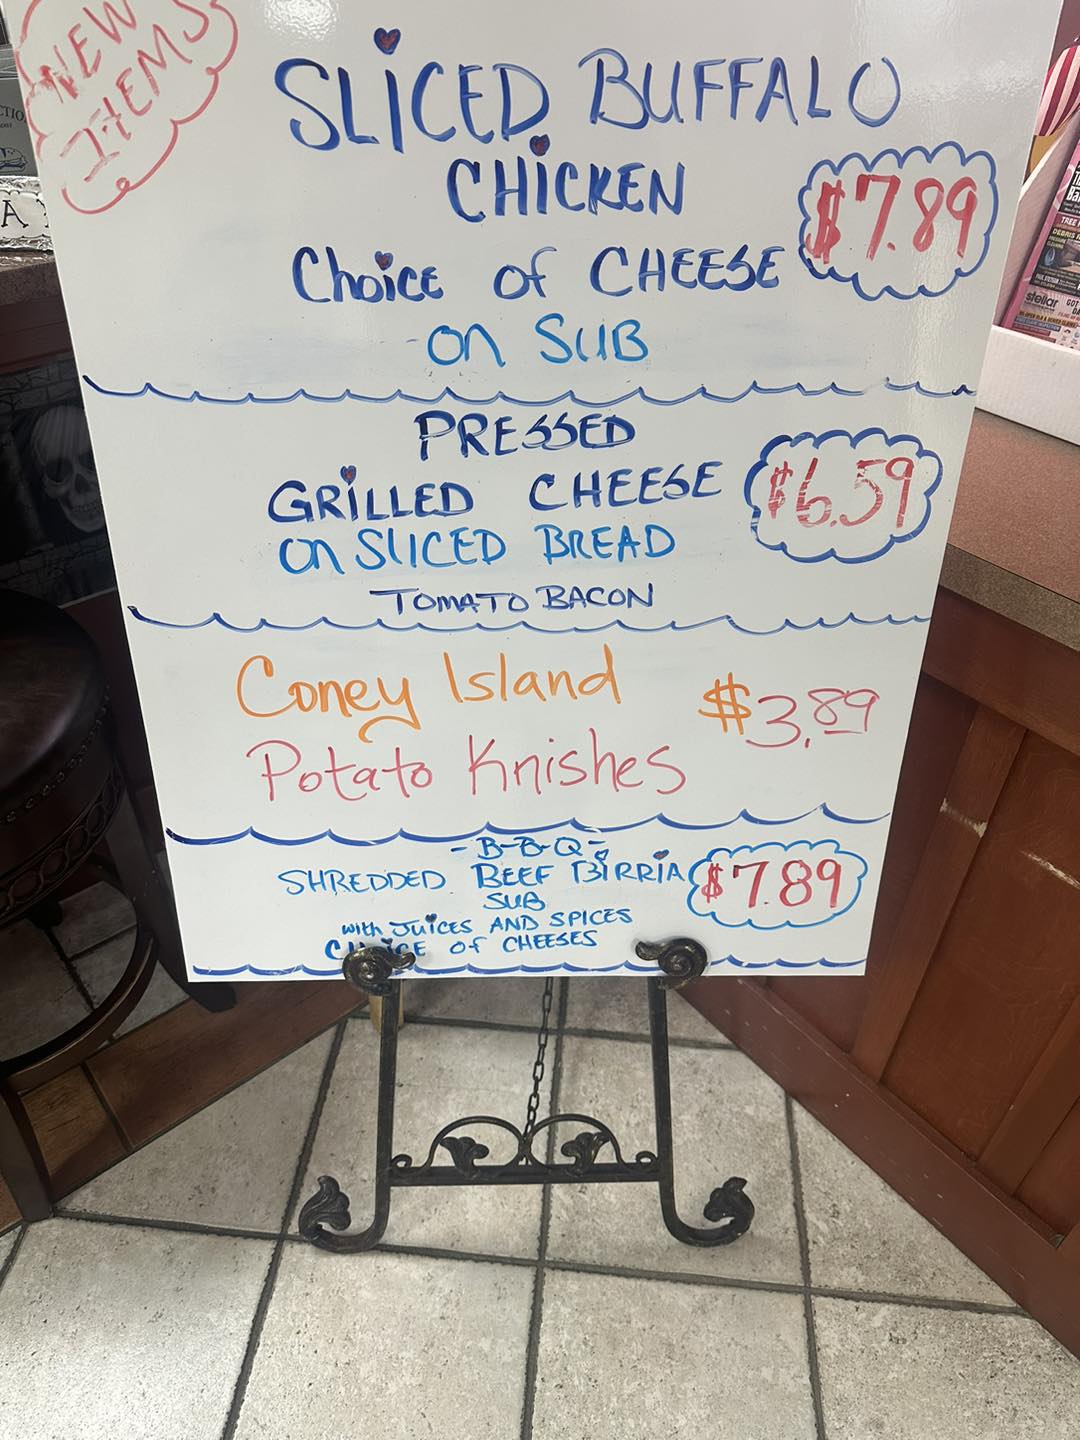 NEW
ITEMS
SLICED BUFFALO
CHICKEN
$7.89
Choice of CHEESE
on SUB
PRESSED
GRILLED CHEESE
$6.59
on SLICED BREAD
TOMATO BACON
Coney Island
$3.89
Potato Knishes
-B-B-Q-
SHREDDED BEEF BIRRIA
$7.89
SUB
with JUICES AND SPICES
CHOICE of CHEESES
stellar